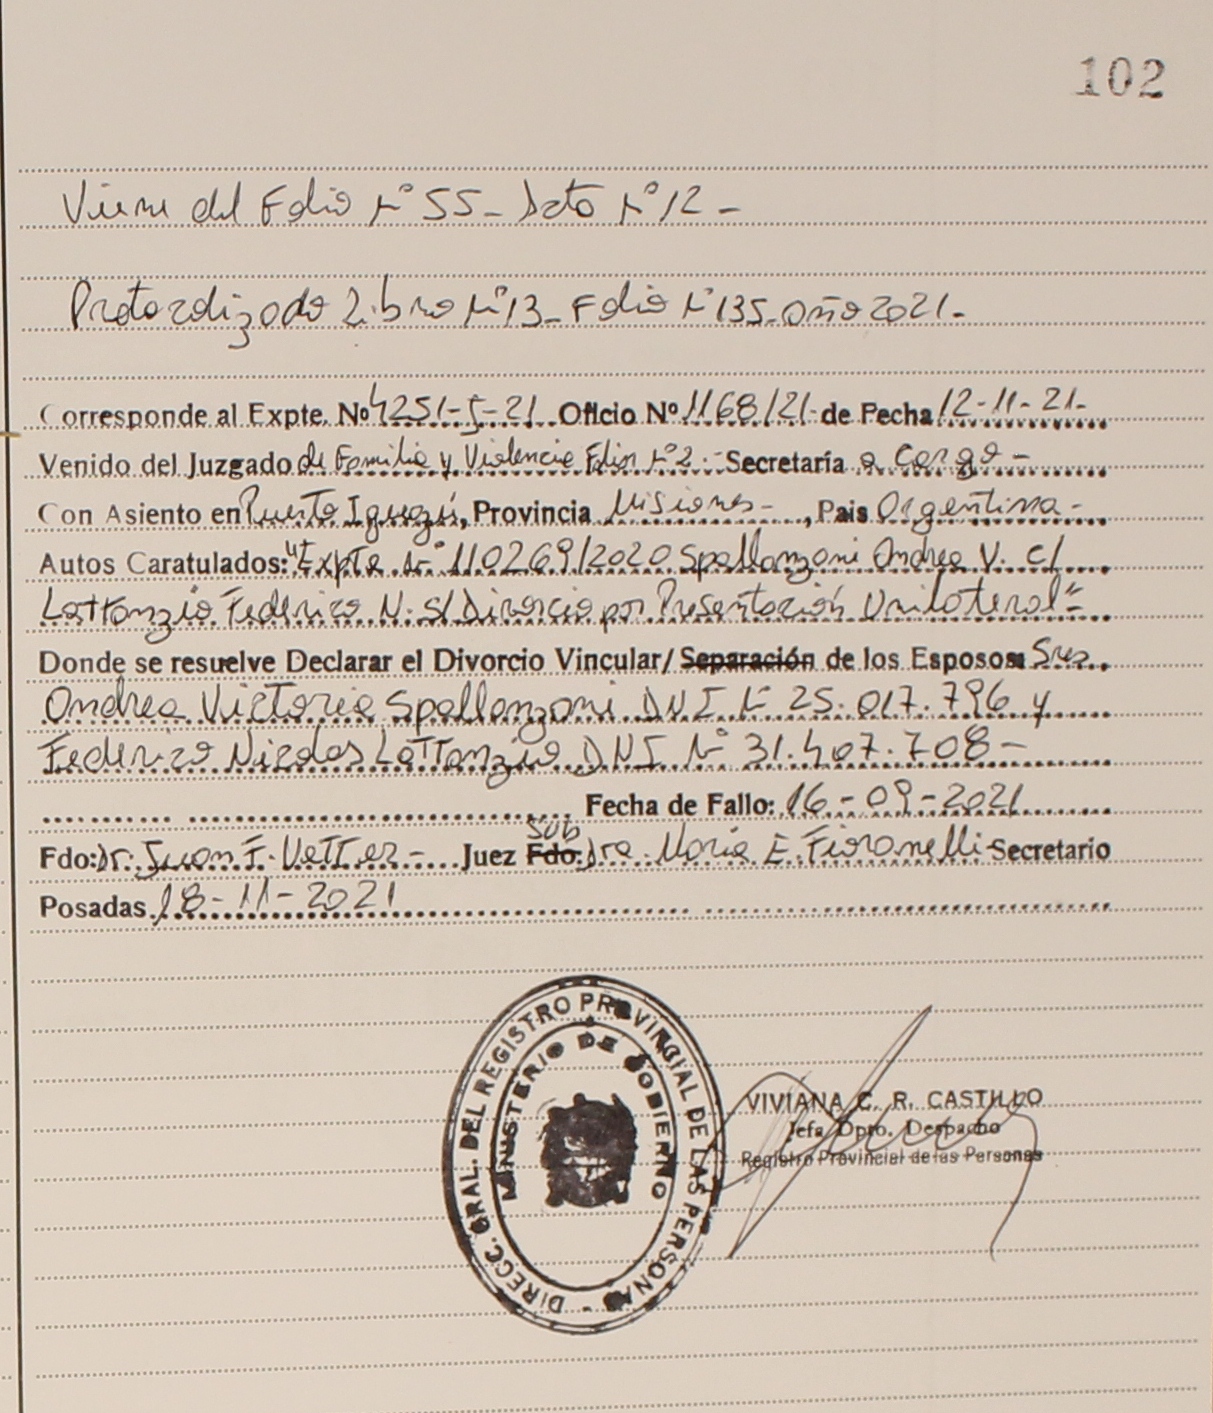 102
Viene del Folio N° 55 - Acta N° 12 -
Protocolizado Libro N° 13 - Folio N° 135 - año 2021 -
Corresponde al Expte. Nº 4251-5-21 Oficio Nº 1168/21- de Fecha 12-11-21-
Venido del Juzgado de Familia y Violencia Fliar N° 2 - Secretaría a cargo -
Con Asiento en Puerto Iguazú, Provincia Misiones -, Pais Argentina -
Autos Caratulados: "Expte N° 110269/2020 Spallanzoni Andrea V. c/
Lattanzio Federico N. s/ Divorcio por Presentación Unilateral"-
Donde se resuelve Declarar el Divorcio Vincular/ Separación de los Esposos: Sres.
Andrea Victoria Spallanzoni DNI N° 25.017.796 y
Federico Nicolas Lattanzio DNI N° 31.407.708 -
Fecha de Fallo: 16-09-2021
Sub
Fdo: Dr. Juan F. Vetter - Juez Fdo. Dra. María E. Fioranelli - Secretario
Posadas, 18-11-2021
DIRECC. GRAL. DEL REGISTRO PROVINCIAL DE LAS PERSONAS -
MINISTERIO DE GOBIERNO
VIVIANA C. R. CASTILLO
Jefa Dpto. Despacho
Registro Provincial de las Personas